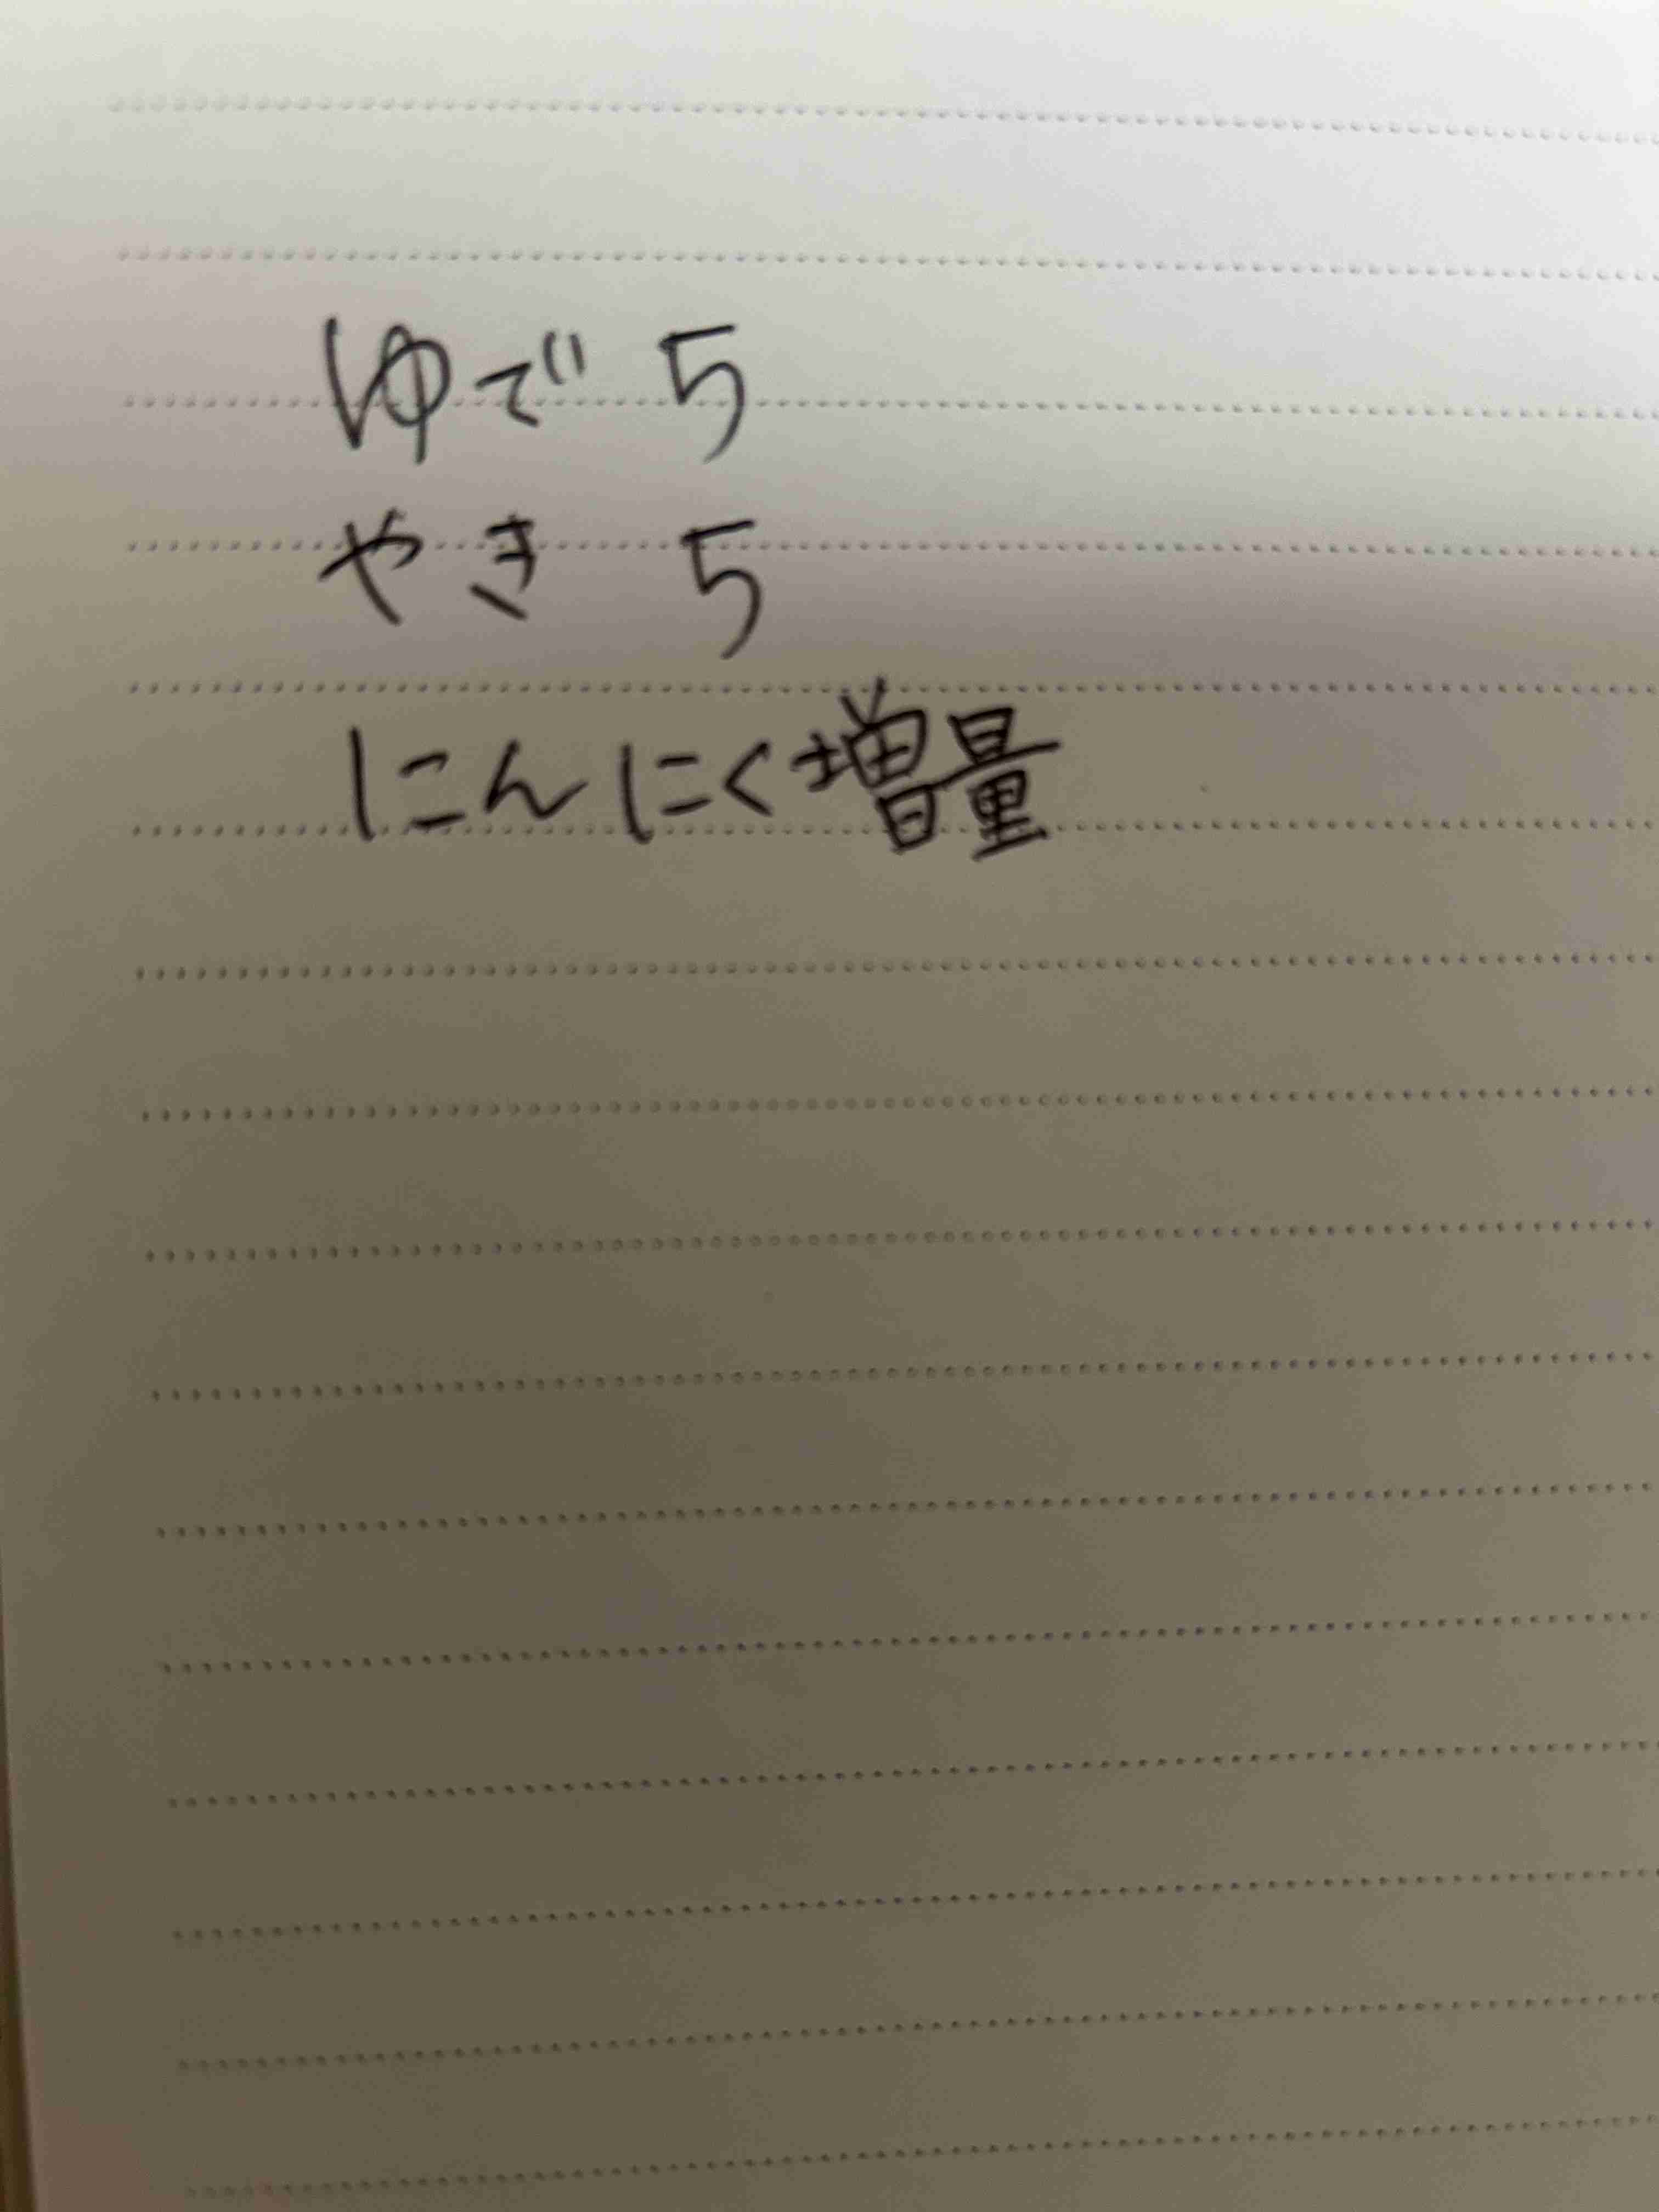 ゆで 5
やき 5
にんにく増量